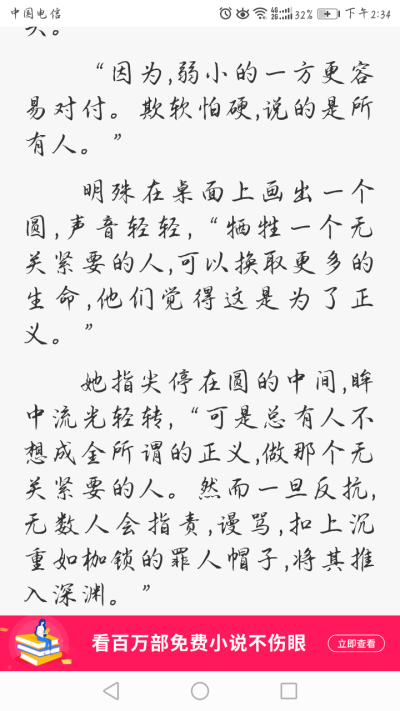 中国电信
4G 2G 32% 下午2:34
头。
“因为,弱小的一方更容
易对付。欺软怕硬,说的是所
有人。”
明殊在桌面上画出一个
圆,声音轻轻,“牺牲一个无
关紧要的人,可以换取更多的
生命,他们觉得这是为了正
义。”
她指尖停在圆的中间,眸
中流光轻转,“可是总有人不
想成全所谓的正义,做那个无
关紧要的人。然而一旦反抗,
无数人会指责,谩骂,扣上沉
重如枷锁的罪人帽子,将其推
入深渊。”
看百万部免费小说不伤眼
立即查看